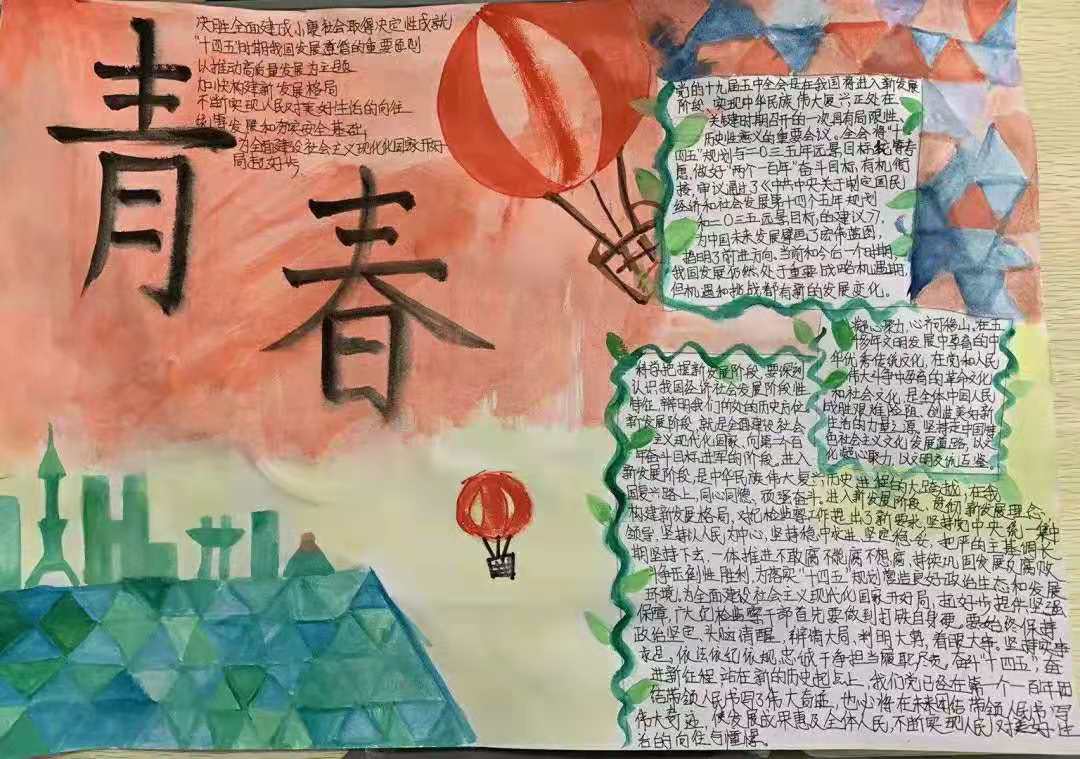 青春
决胜全面建成小康社会取得决定性成就
"十四五"时期我国发展遵循的重要原则
以推动高质量发展为主题
加快构建新发展格局
不断实现人民对美好生活的向往
统筹发展和 安全基础
为全面建设社会主义现代化国家开好
局起好步
党的十九届五中全会是在我国将进入新发展
阶段、实现中华民族伟大复兴正处在
关键时期召开的一次具有局限性
历史性意义的重要会议。全会将"十
四五"规划与二〇三五年远景目标统筹考
虑,做好"两个一百年"奋斗目标,有机衔
接,审议通过了《中共中央关于制定国民
经济和社会发展第十四个五年规划
和二〇三五远景目标,的建议》,
为中国未来发展擘画了宏伟蓝图,
指明了前进方向,当前和今后一个时期,
我国发展仍然处于重要战略机遇期,
但机遇和挑战都有新的发展变化。
凝心聚力,心齐可移山。在五
千多年文明发展中孕育的中
华优秀传统文化,在党和人民
伟大斗争中孕育的革命文化
和社会文化,是全体中国人民
战胜艰难险阻、创造美好新
生活的力量之源,坚持走中国特
色社会主义文化发展道路,以文
化凝心聚力,以文明交流互鉴。
科学把握新发展阶段,要深刻
认识我国经济社会发展阶段性
特征,辨明我们所处的历史方位
新发展阶段,就是全面建设社会
主义现代化国家、向第二个百
年奋斗目标进军的阶段。进入
新发展阶段,是中华民族伟大复兴历史进程的大跨越,在我
国复兴路上,同心同德,顽强奋斗,进入新发展阶段、贯彻新发展理念、
构建新发展格局,对纪检监察工作提出了新要求,坚持党中央统一集中
领导,坚持以人民为中心,坚持稳中求进,坚定稳妥,把严的主基调长
期坚持下去,一体推进不敢腐不能腐不想腐,持续巩固发展反腐败
斗争压倒性胜利,为落实"十四五"规划营造良好政治生态和发展
环境,为全面建设社会主义现代化国家开好局,起好步提供坚强
保障,广大纪检监察干部首先要做到打铁自身硬,要始终保持
政治坚定、头脑清醒,辨清大局,判明大势,看眼大事。坚持实事
求是,依法依纪依规,忠诚干净担当履职尽责,奋斗"十四五",奋
进新征程,站在新的历史起点上,我们党已经在第一个一百年团
结带领人民书写了伟大奇迹,也必将在未来团结带领人民书写
伟大奇迹,使发展成果惠及全体人民,不断实现人民对美好生
活的向往与憧憬。